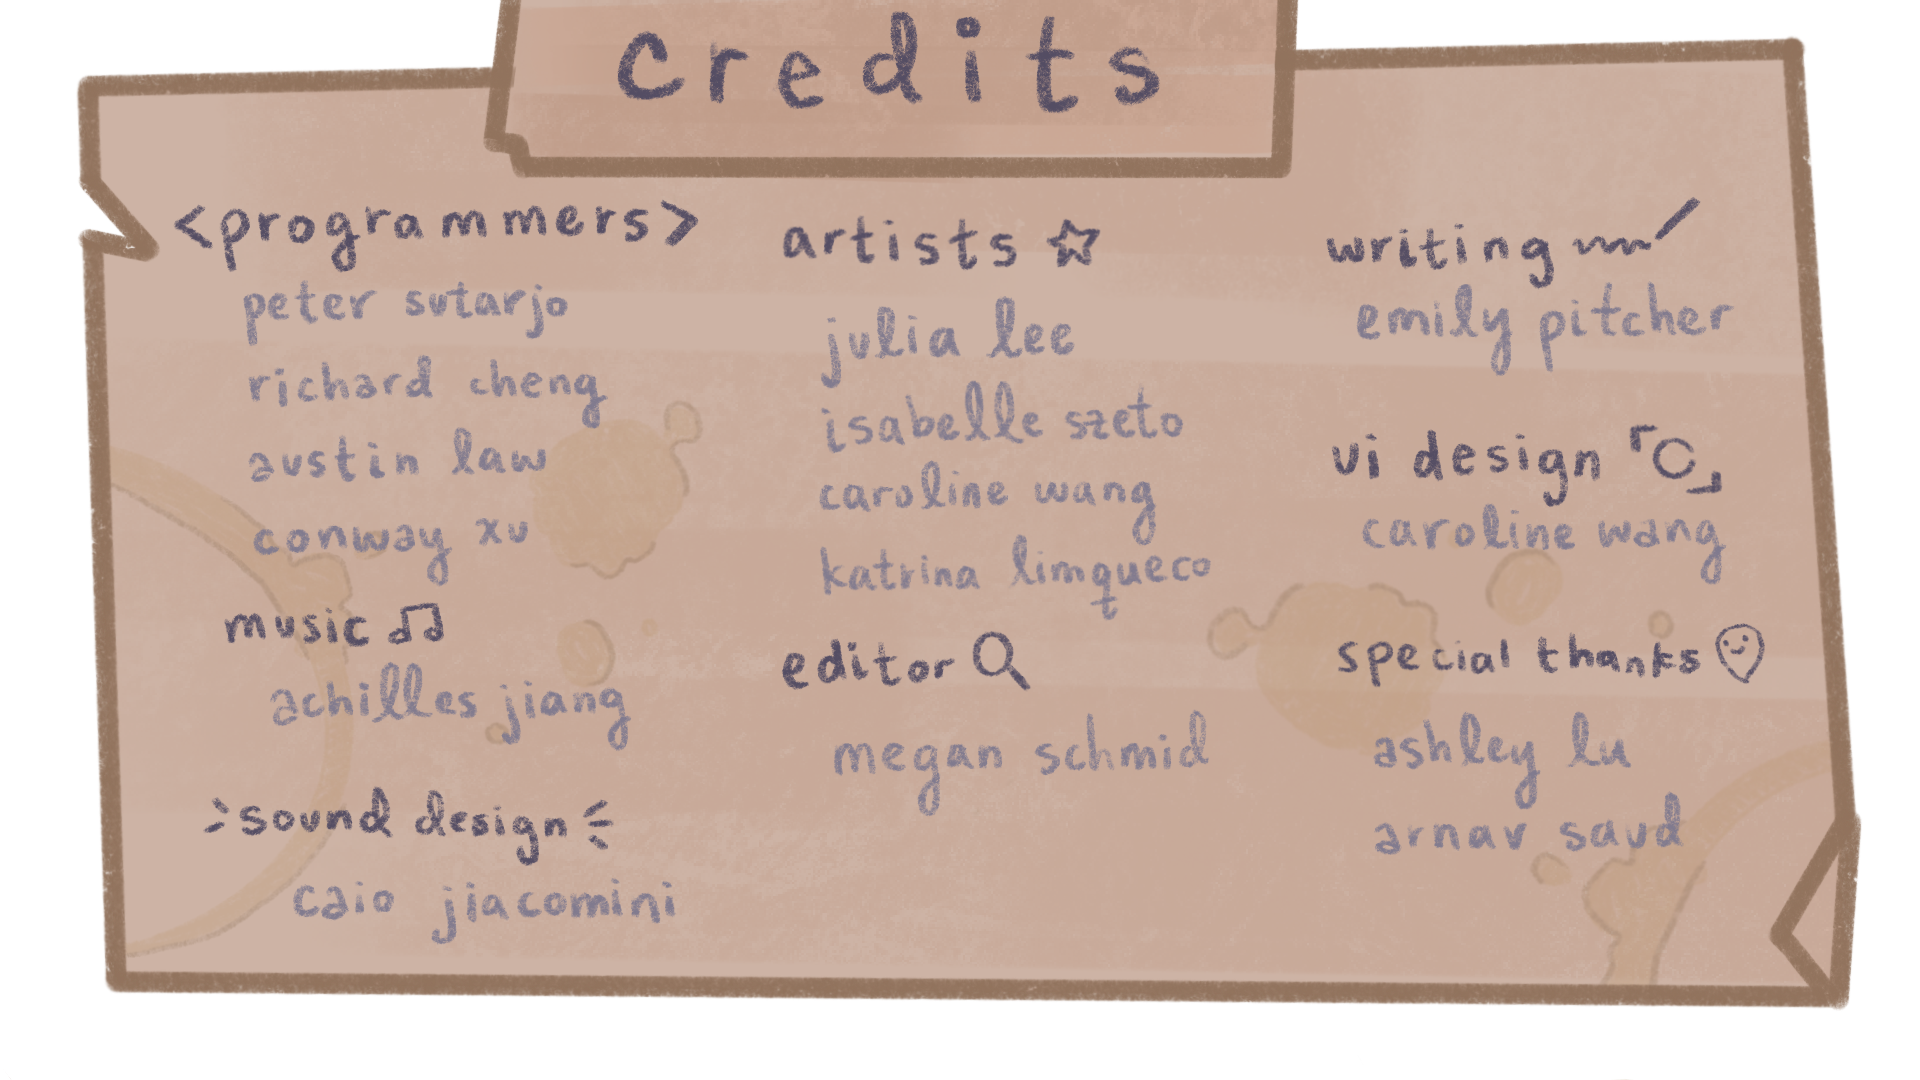 credits
<programmers>
peter sutarjo
richard cheng
austin law
conway xu
music
achilles jiang
sound design
caio jiacomini
artists
julia lee
isabelle szeto
caroline wang
katrina limqueco
editor
megan schmid
writing
emily pitcher
ui design
caroline wang
special thanks
ashley lu
arnav saud